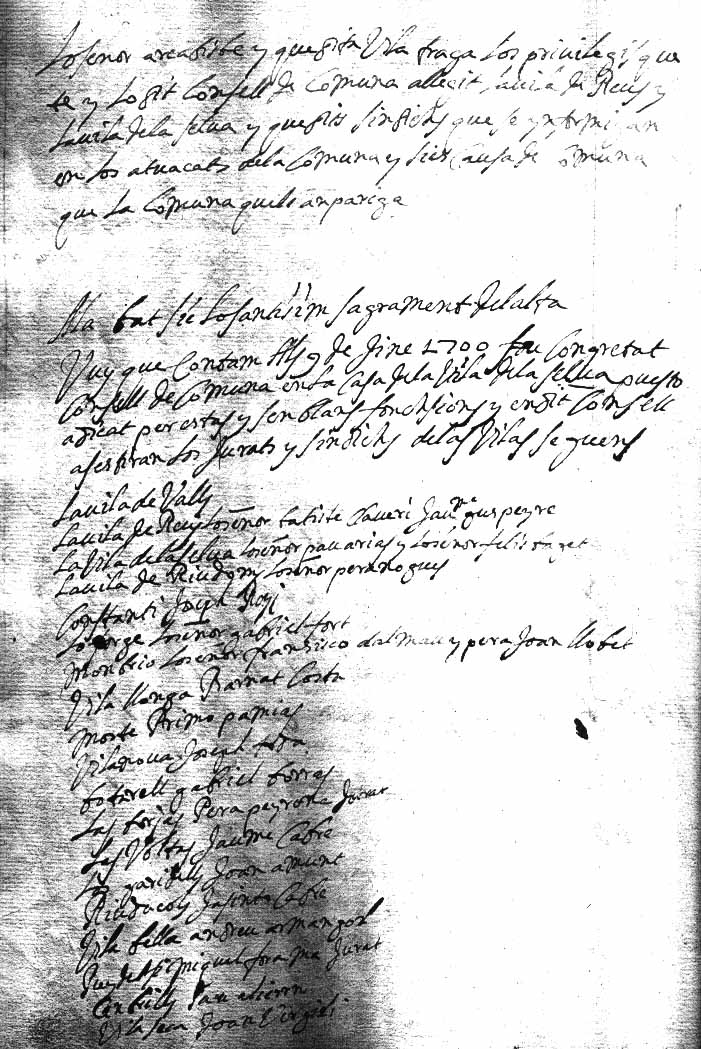 Losenor arcabisbe y que dita Vila traga los privilegis que
te y Lo dit Consell de Comuna allegit la vila de Reus y
Lavila dela selva y que dits sindichs que se ynformian
en los atvacats dela Comuna y si es Causa de Comuna
que La Comuna quels anpariga
Alabat sie Losantisim sagrament del alta
Vuy que Contam als 9 de Jine 1700 fou Congregat
Consell de Comuna en la Casa dela Vila dela selva puesto
adicat per estas y semblans fonchsions y en dit Consell
asestiran Los Jurats y sindichs de las Vilas seguens
Lavila de Valls
Lavila de Reus Losenor batiste Claveri Jaume guspeyre
La Vila dela selva Losenor pau arias y Losenor felis
Lavila de Riudoms Losenor pera nogues
Constanti Joseph Rogi
Lo borge Losenor gabriel fort
Monbrio Losenor fransisco dalmau y pera Joan llobet
Vila llonga Barnat Costa
Morte Primo pamias
Vilanova Joseph
botarell gabriel borras
Las borjas Pera peyrona Jurat
Las Voltas Jaume Cabre
Los garidells Joan amunt
Riudecols Jasinto Cabre
Vila bella andreu armangol
miquel Jurat
Canbrils Pau
Vila seca Joan Virgili